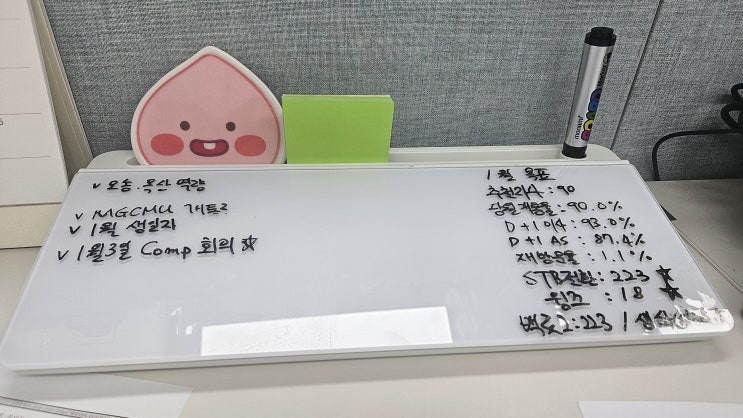 v 오송.옥산 역량
v MGCMU
v 1월 생일자
v 1월3일 Comp 회의 ☆
1월 목표
추천지수 : 90
: 90.0%
D+1 이사 : 93.0%
D+1 AS : 87.4%
재방문율 : 1.1%
STB전환 : 223 ☆
윙즈 : 18 ☆
: 223 /
monami